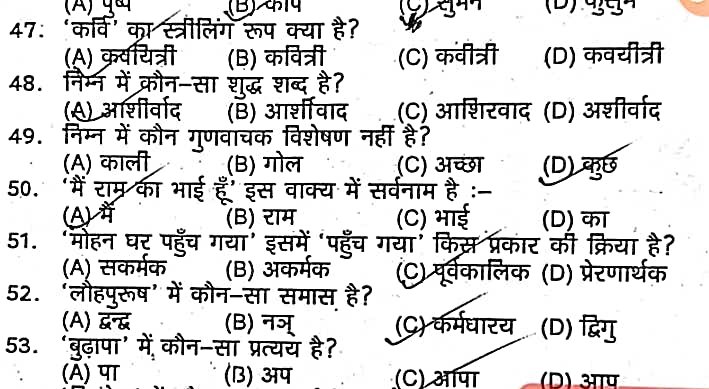 (A) पुष्प (B) कोप (C) सुमन (D) कुसुम
47: 'कवि' का स्त्रीलिंग रूप क्या है?
(A) कवयित्री (B) कवित्री (C) कवीत्री (D) कवयीत्री
48. निम्न में कौन-सा शुद्ध शब्द है?
(A) आशीर्वाद (B) आर्शीवाद (C) आशिरवाद (D) अशीर्वाद
49. निम्न में कौन गुणवाचक विशेषण नहीं है?
(A) काली (B) गोल (C) अच्छा (D) कुछ
50. 'मैं राम का भाई हूँ' इस वाक्य में सर्वनाम है :–
(A) मैं (B) राम (C) भाई (D) का
51. 'मोहन घर पहुँच गया' इसमें 'पहुँच गया' किस प्रकार की क्रिया है?
(A) सकर्मक (B) अकर्मक (C) पूर्वकालिक (D) प्रेरणार्थक
52. 'लौहपुरूष' में कौन-सा समास है?
(A) द्वन्द्व (B) नञ् (C) कर्मधारय (D) द्विगु
53. 'बुढ़ापा' में कौन-सा प्रत्यय है?
(A) पा (B) अप (C) आपा (D) आप